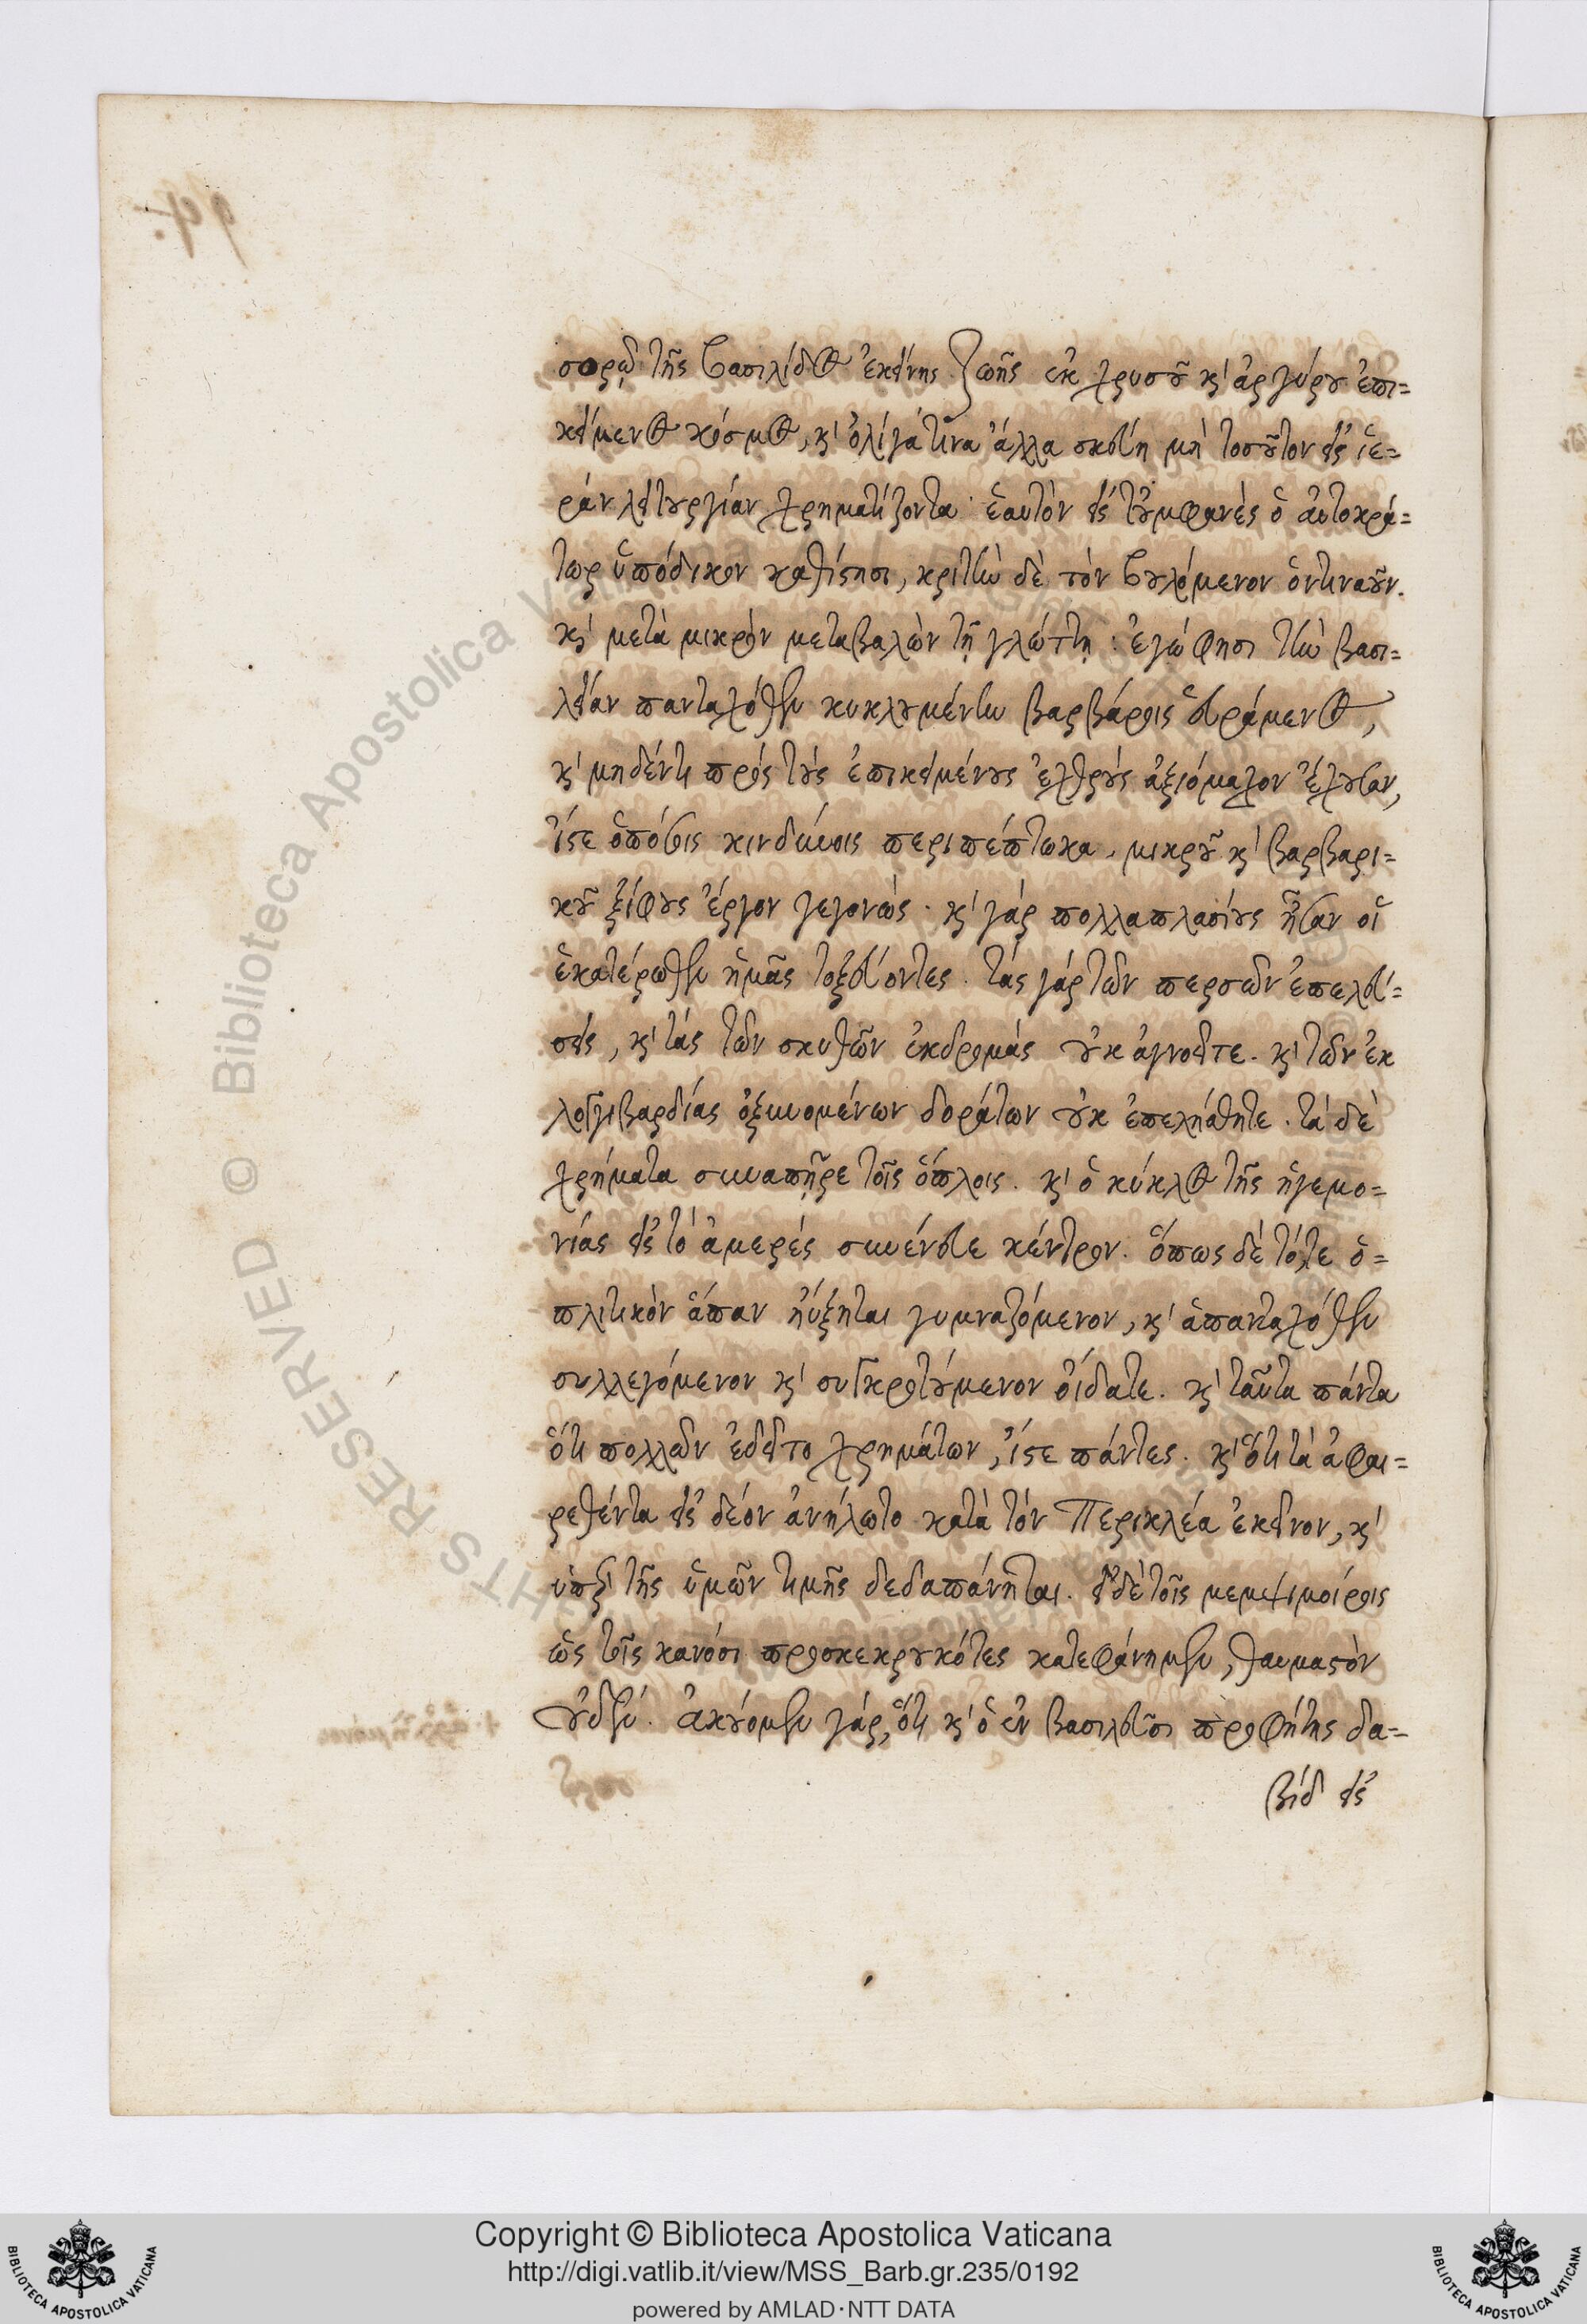 σορῷ τῆς βασιλίδος ἐκείνης ζωῆς ἐκ χρυσοῦ κ' ἀργύρου ἐπι=
κείμενος κόσμος, κ' ὀλίγα τινα ἄλλα σκεύη μὴ τοσοῦτον εἰς ἱε=
ρὰν λειτουργίαν χρηματίζοντα· ἑαυτὸν εἰς τοὐμφανὲς ὁ αὐτοκρά=
τωρ ὑπόδικον καθίστησι, κριτὴν δὲ τὸν βουλόμενον ὁντιναοῦν.
κ' μετὰ μικρὸν μεταβαλὼν τῇ γλώττῃ : ἐγώ φησι τὴν βασι=
λείαν πανταχόθεν κυκλουμένην βαρβάροις εὑράμενος,
κ' μηδέντι πρὸς τοὺς ἐπικειμένους ἐχθροὺς ἀξιόμαχον ἔχουσαν,
ἴστε ὁπόσοις κινδύνοις περιπέπτωκα, μικροῦ κ' βαρβαρι=
κοῦ ξίφους ἔργον γεγονώς· κ' γάρ πολλαπλασίους ἦσαν οἱ
ἑκατέρωθεν ἡμᾶς τοξεύοντες. τὰς γάρ τῶν περσῶν ἐπελεύ=
σεις, κ' τὰς τῶν σκυθῶν ἐκδρομὰς οὐκ ἀγνοεῖτε. κ' τῶν ἐκ
λογγιβαρδίας ὀξυνομένων δοράτων οὐκ ἐπελήσθητε. τὰ δὲ
χρήματα συναπῆρε τοῖς ὅπλοις. κ' ὁ κύκλος τῆς ἡγεμο=
νίας εἰς τὸ ἀμερές συνένευε κέντρον. ὅπως δὲ τότε ὁ=
πλιτικὸν ἅπαν ηὔξηται γυμναζόμενον, κ' ἁπανταχόθεν
συλλεγόμενον κ' συγκροτούμενον οἴδατε. κ' ταῦτα πάντα
ὅτι πολλῶν ἐδεῖτο χρημάτων, ἴστε πάντες. κ' ὅτι τὰ ἀφαι=
ρεθέντα εἰς δέον ἀνήλωτο κατὰ τόν Περικλέα ἐκεῖνον, κ'
ὑπὲρ τῆς ὑμῶν τιμῆς δεδαπάνηται. εἰ δὲ τοῖς μεμψιμοίροις
ὡς τοῖς κανόσι προσκεκρουκότες κατεφάνημεν, θαυμαστὸν
οὐδέν. ἀκούομεν γάρ, ὅτι κ' ὁ ἐν βασιλεῦσι προφήτης δα=
βίδ εἰς
Copyright © Biblioteca Apostolica Vaticana
http://digi.vatlib.it/view/MSS_Barb.gr.235/0192
powered by AMLAD·NTT DATA